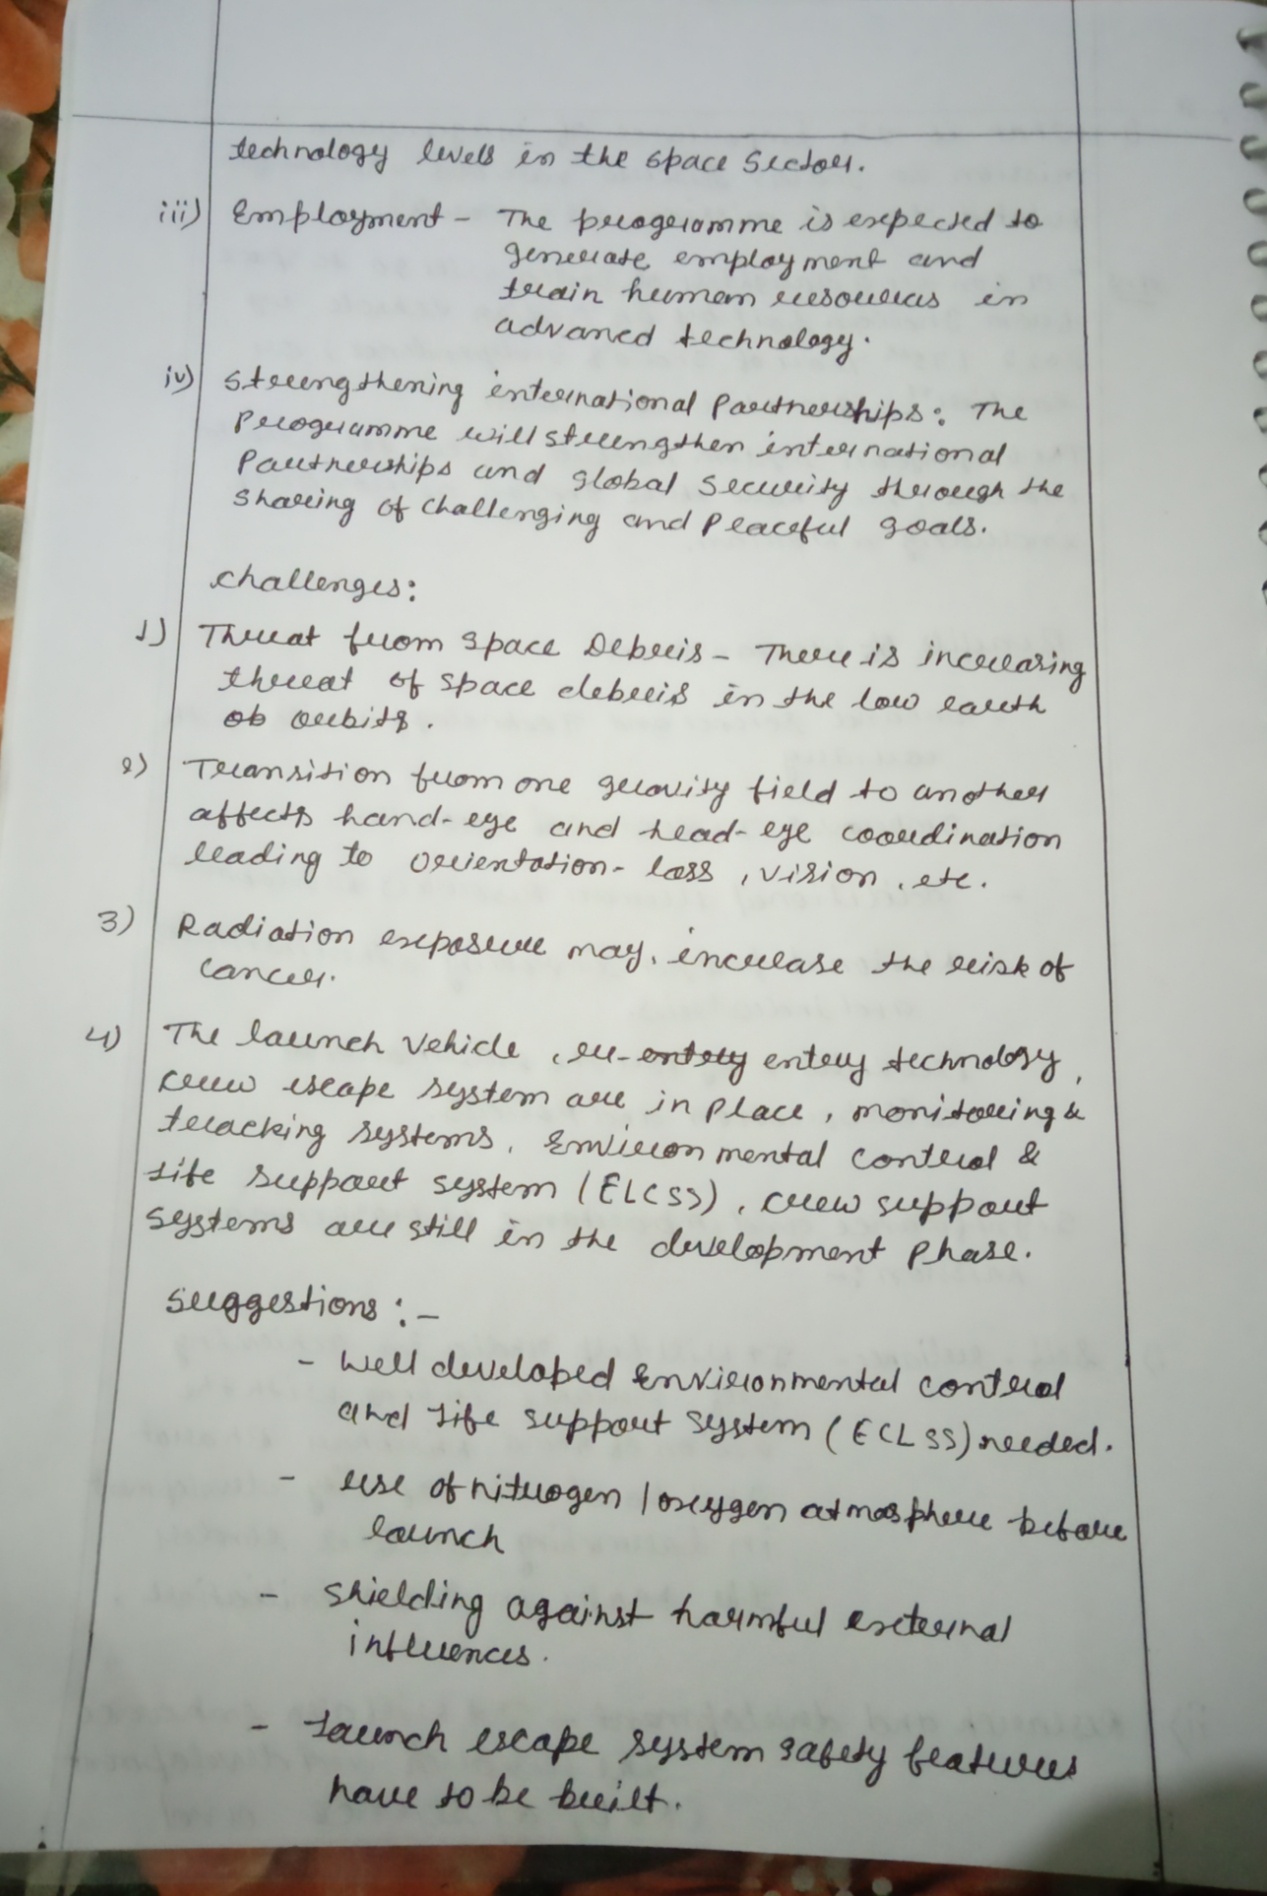 technology levels in the space Sector.
iii) Employment - The programme is expected to
generate employment and
train human resources in
advanced technology.
iv) Strengthening international Partnerships: The
Programme will strengthen international
Partnerships and global Security through the
Sharing of challenging and Peaceful goals.
Challenges:
1) Threat from Space Debris - There is increasing
threat of space debris in the low earth
ob orbits.
2) Transition from one gravity field to another
affects hand-eye and head-eye coordination
leading to orientation-loss, vision, etc.
3) Radiation exposure may, increase the risk of
cancer.
4) The launch Vehicle, re-entery entery technology,
crew escape system are in place, monitoring &
tracking systems, Environmental Control &
Life support system (ELCSS), crew support
systems are still in the development Phase.
Suggestions :-
- Well developed Environmental control
and Life support system (ECLSS) needed.
- use of nitrogen / oxygen atmosphere before
launch
- shielding against harmful external
influences.
- Launch escape system safety features
have to be built.